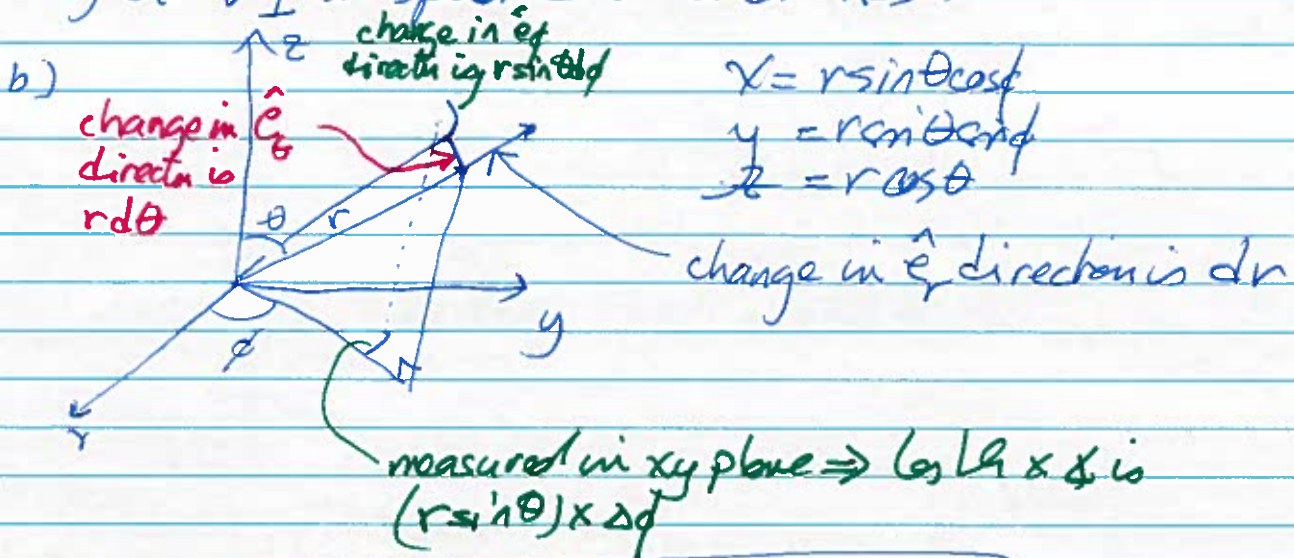 b)
z
change in ê_φ
directn is r sinθdφ
change in ê_θ
directn is
rdθ
θ
r
x = r sinθcosφ
y = r sinθsinφ
z = r cosθ
change in ê_r direction is dr
y
φ
measured in xy plane ⇒ × ∡ is
(r sinθ) × Δφ